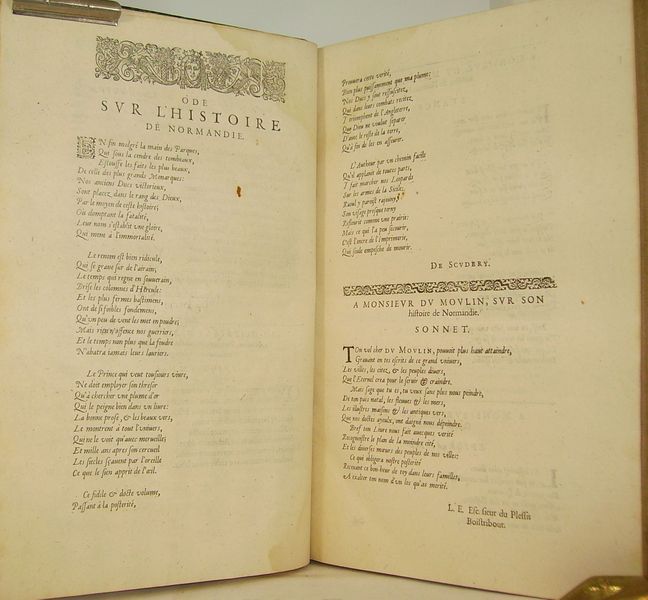 ODE
SVR L'HISTOIRE
DE NORMANDIE.
EN fin malgré la main des Parques,
Qui sous la cendre des tombeaux,
Estouffe les faits les plus beaux,
De celle des plus grands Monarques:
Nos anciens Ducs victorieux,
Sont placez dans le rang des Dieux,
Par le moyen de ceste histoire;
Où domptant la fatalité,
Leur nom s'establit vne gloire,
Qui mene à l'immortalité.
Le renom est bien ridicule,
Qui se graue sur de l'airain;
Le temps qui regne en souuerain,
Brise les colomnes d'Hercule:
Et les plus fermes bastimens,
Ont de si foibles fondemens,
Qu'vn peu de vent les met en poudre;
Mais rien n'offence nos guerriers,
Et le temps non plus que la foudre
N'abatra iamais leurs lauriers.
Le Prince qui veut tousiours viure,
Ne doit employer son thresor
Qu'à chercher vne plume d'or
Qui le peigne bien dans vn liure:
La bonne prose, & les beaux vers,
Le montrent à tout l'vniuers,
Qui ne le voit qu'auec merueilles
Et mille ans apres son cercueil
Les siecles sçauent par l'oreille
Ce que le sien apprit de l'œil.
Ce fidile & docte volume,
Passant à la posterité,
Prouuera cette verité,
Bien plus puissamment que ma plume:
Nos Ducs y sont ressuscitez,
Qui dans leurs combats recitez
Triomphent de l'Angleterre,
Que Dieu ne voulut separer
D'auec le reste de la terre,
Qu'à fin de les en asseurer.
L'Autheur par vn chemin facile
Qu'il applanit de toutes parts,
Fait marcher nos Leopards
Sur les armes de la Sicile;
Raoul y paroist
Son visage presque terny
Refleurit comme vne prairie:
Mais ce qui l'a peu secourir,
C'est l'ancre de l'imprimerie,
Qui seule empesche de mourir.
DE SCVDERY.
A MONSIEVR DV MOVLIN, SVR SON
histoire de Normandie.
SONNET.
TOn vol cher DV MOVLIN, pouuoit plus haut attaindre,
Grauant en tes escrits de ce grand vniuers,
Les villes, les citez, & les peuples diuers,
Que l'Eternel crea pour le seruir & craindre.
Mais sage que tu es, tu veux sans plus nous peindre,
De ton païs natal, les fleuues & les mers,
Les illustres maisons & les antiques vers,
Que nos doctes ayeuls, ont daigné nous dépeindre.
Bref ton Liure nous fait auecques verité
Recognoistre le plan de la moindre cité,
Et les diuerses mœurs des peuples de nos villes:
Ce qui obligera nostre posterité
Receuant ce bon-heur de toy dans leurs familles,
A exalter ton nom d'vn los qu'as merité.
L. E. Esc. sieur du Plessis
Boistribout.